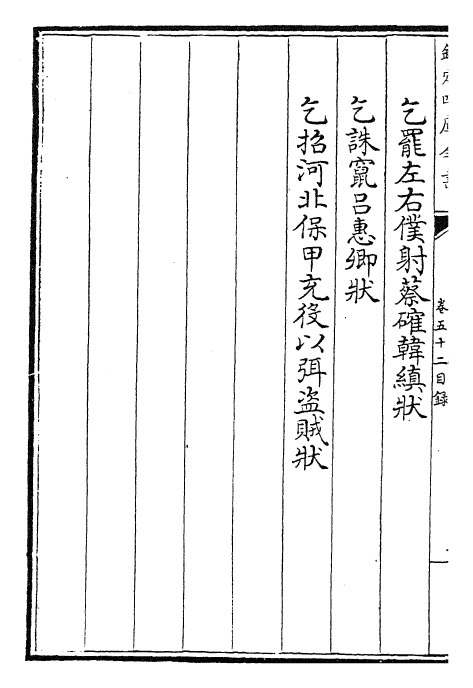 欽定四庫全書
卷五十二目録
乞罷左右僕射蔡確韓縝狀
乞誅竄吕惠卿狀
乞招河北保甲充役以弭盜賊狀